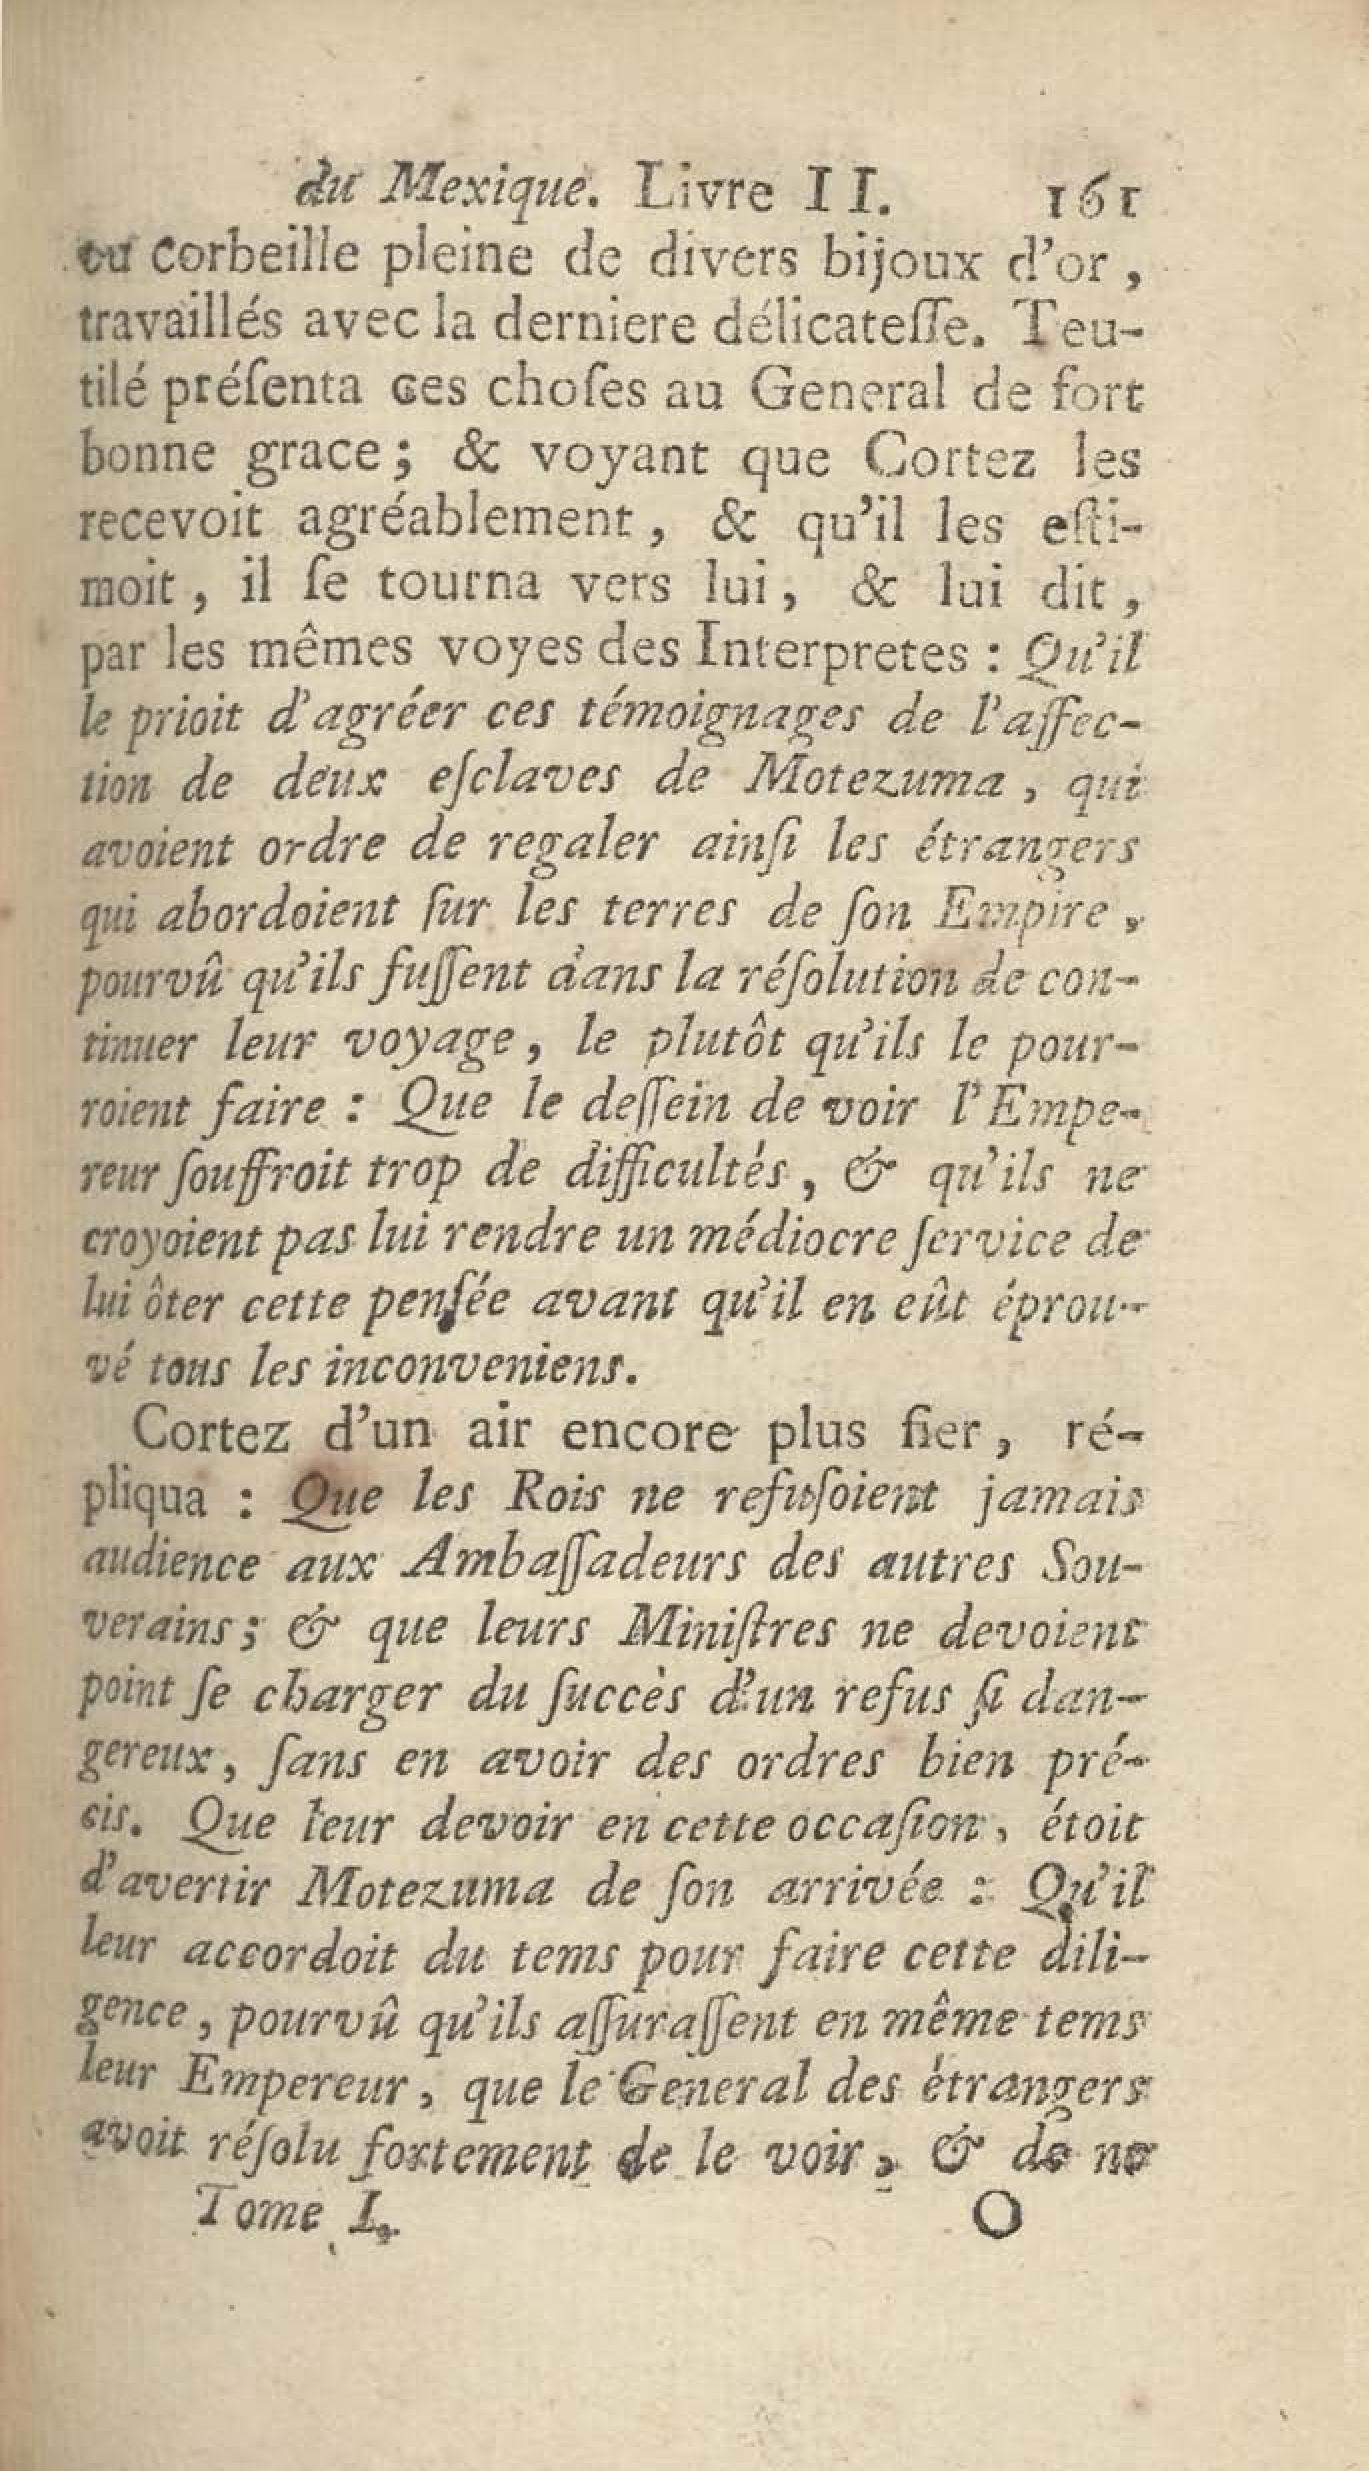 du Mexique. Livre II. 161
ou corbeille pleine de divers bijoux d'or,
travaillés avec la derniere délicateſſe. Teu-
tilé préſenta ces choſes au General de fort
bonne grace; & voyant que Cortez les
recevoit agréablement, & qu'il les eſti-
moit, il ſe tourna vers lui, & lui dit,
par les mêmes voyes des Interpretes : Qu'il
le prioit d'agréer ces témoignages de l'affec-
tion de deux eſclaves de Motezuma, qui
avoient ordre de regaler ainſi les étrangers
qui abordoient ſur les terres de ſon Empire,
pourvû qu'ils fuſſent dans la réſolution de con-
tinuer leur voyage, le plutôt qu'ils le pour-
roient faire : Que le deſſein de voir l'Empe-
reur ſouffroit trop de difficultés, & qu'ils ne
croyoient pas lui rendre un médiocre ſervice de
lui ôter cette penſée avant qu'il en eût éprou-
vé tous les inconveniens.
Cortez d'un air encore plus fier, ré-
pliqua : Que les Rois ne refuſoient jamais
audience aux Ambaſſadeurs des autres Sou-
verains; & que leurs Miniſtres ne devoient
point ſe charger du ſuccès d'un refus ſi dan-
gereux, ſans en avoir des ordres bien pré-
cis. Que leur devoir en cette occaſion, étoit
d'avertir Motezuma de ſon arrivée : Qu'il
leur accordoit du tems pour faire cette dili-
gence, pourvû qu'ils aſſuraſſent en même tems
leur Empereur, que le General des étrangers
avoit réſolu fortement de le voir, & de ne
Tome I. O